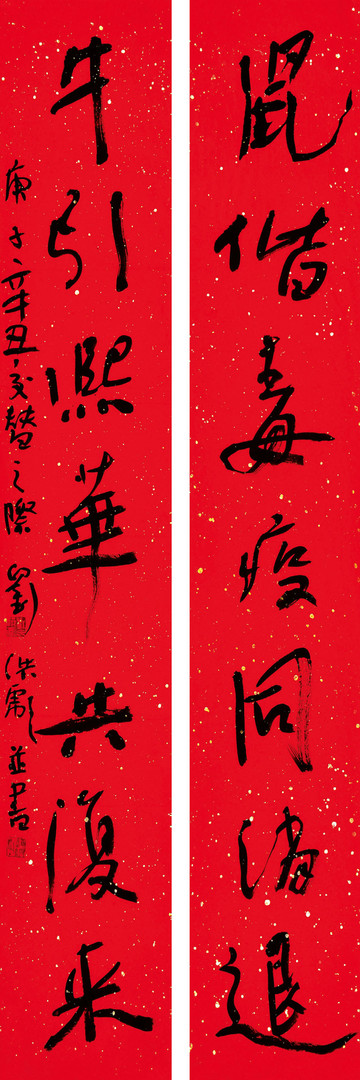 鼠偕毒疫同消退
牛引熙華共復来
庚子辛丑交替之際 劉洪彪并書